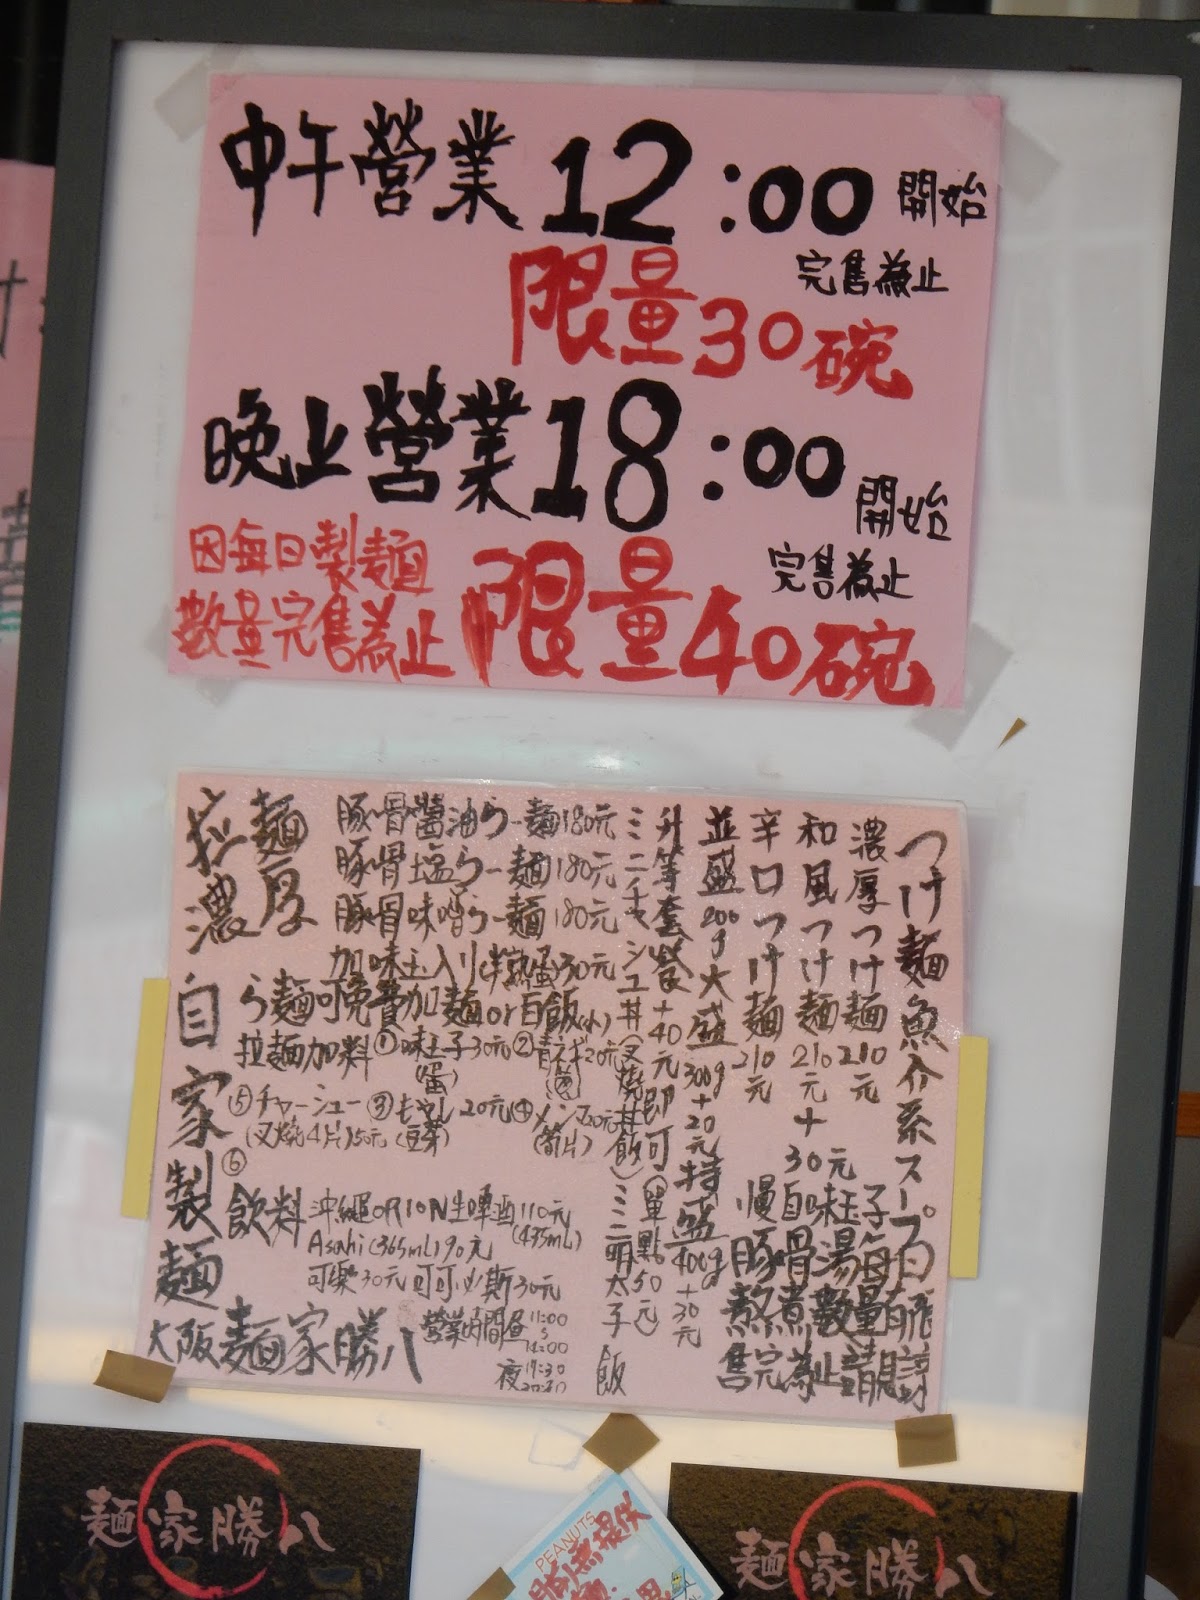 中午營業12:00開始
完售為止
限量30碗
晚上營業18:00開始
完售為止
因每日製麵
數量完售為止
限量40碗
つけ麵魚介系スープ
濃厚つけ麵210元
和風つけ麵210元+30元
辛口つけ麵210元
並盛200g大盛300g+20元特盛400g+30元
升等套餐+40元即可(單點50元)
ミニチャシュ丼(叉燒丼飯)ミニ明太子飯
慢自味玉子
豚骨湯每日
熬煮數量有限
售完為止請見諒
拉麵
濃厚
豚骨醬油らー麵180元
豚骨塩らー麵180元
豚骨味噌らー麵180元
加味玉入り(半熟蛋)30元
ら麵可免費加麵or白飯(小)
拉麵加料①味玉子30元②青ネギ20元
(蛋)
⑤チャーシュー③もやし20元④メンマ20元
(叉燒4片)50元(豆芽)(筍片)
⑥
飲料
沖繩ORION生啤酒110元
(435ml)
Asahi(365ml)90元
可樂30元可可必斯30元
自家製麵
大阪麵家勝八
營業時間昼11:00
14:00
夜17:30
麵家勝八
PEANUTS
麵家勝八